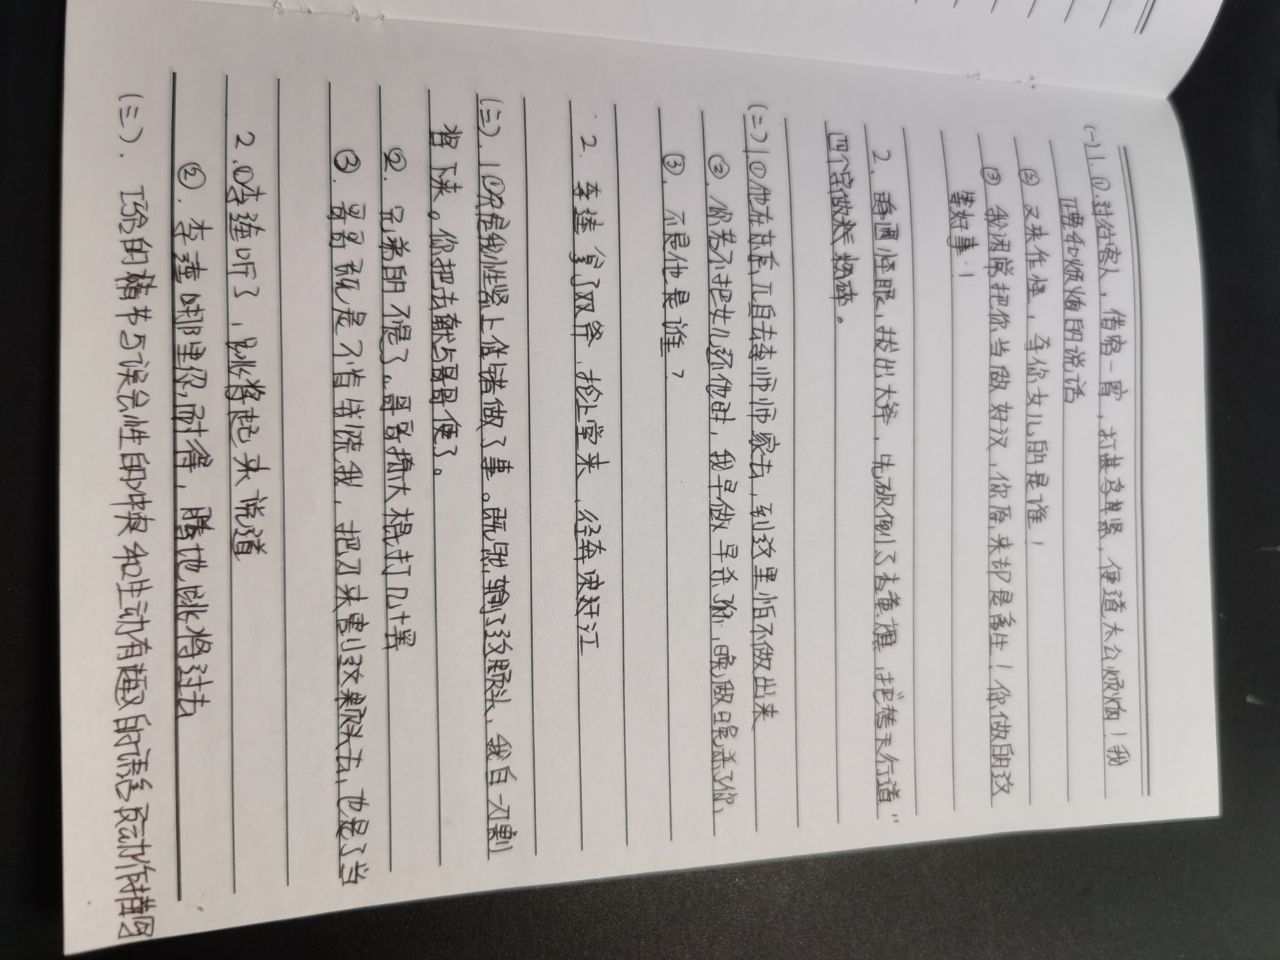 (一)1.①对姓客人,借宿一宵,打甚鸟紧,便道太公烦恼!我
正要和烦恼的说话
②又来作怪,夺你女儿的是谁!
③我闲常把你当做好汉,你原来却是畜生!你做的这
等好事!
2.睁圆怪眼,拔出大斧,先砍倒了杏黄旗,把“替天行道”
四个字做
(二)1.①他在东京兀自去李师师家去,到这里怕不做出来
②.你若不把女儿还他时,我早做早杀你,晚做晚杀了你,
③.不是他是谁?
2.李逵拿了双斧,抢上堂来,径奔宋江
(三).1①只是我性紧上错做了事。既然输了这颗头,我自一刀割
将下来。你把去献与哥哥便了。
②.兄弟的不是了。哥哥揍大棍打几十罢
③.哥哥既是不肯饶我,把刀来割这颗头去,也是了当
2.①李逵听了,跳将起来说道
②.李逵哪里忍耐得,腾地跳将过去
(三).巧合的情节与误会性的冲突和生动有趣的语言及动作描写